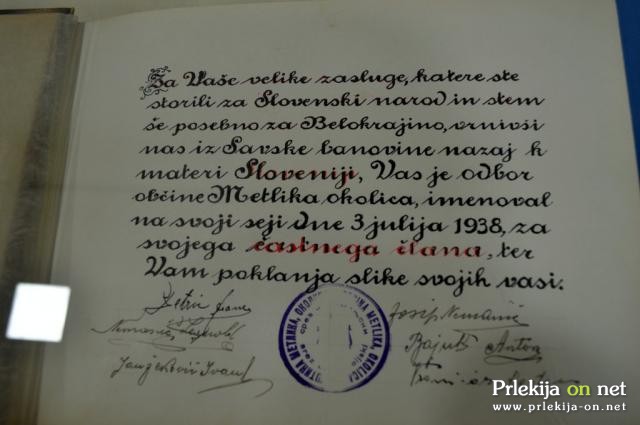 Za Vaše velike zasluge, katere ste
storili za Slovenski narod in stem
še posebno za Belokrajino, vrnivši
nas iz Savske banovine nazaj k
materi Sloveniji, Vas je odbor
občine Metlika okolica, imenoval
na svoji seji dne 3 julija 1938, za
svojega častnega člana, ter
Vam poklanja slike svojih vasi.
Josip Nemanič
Bajuk Anton
Ivan
METLIKA OKOLICA
Prlekija on net
www.prlekija-on.net